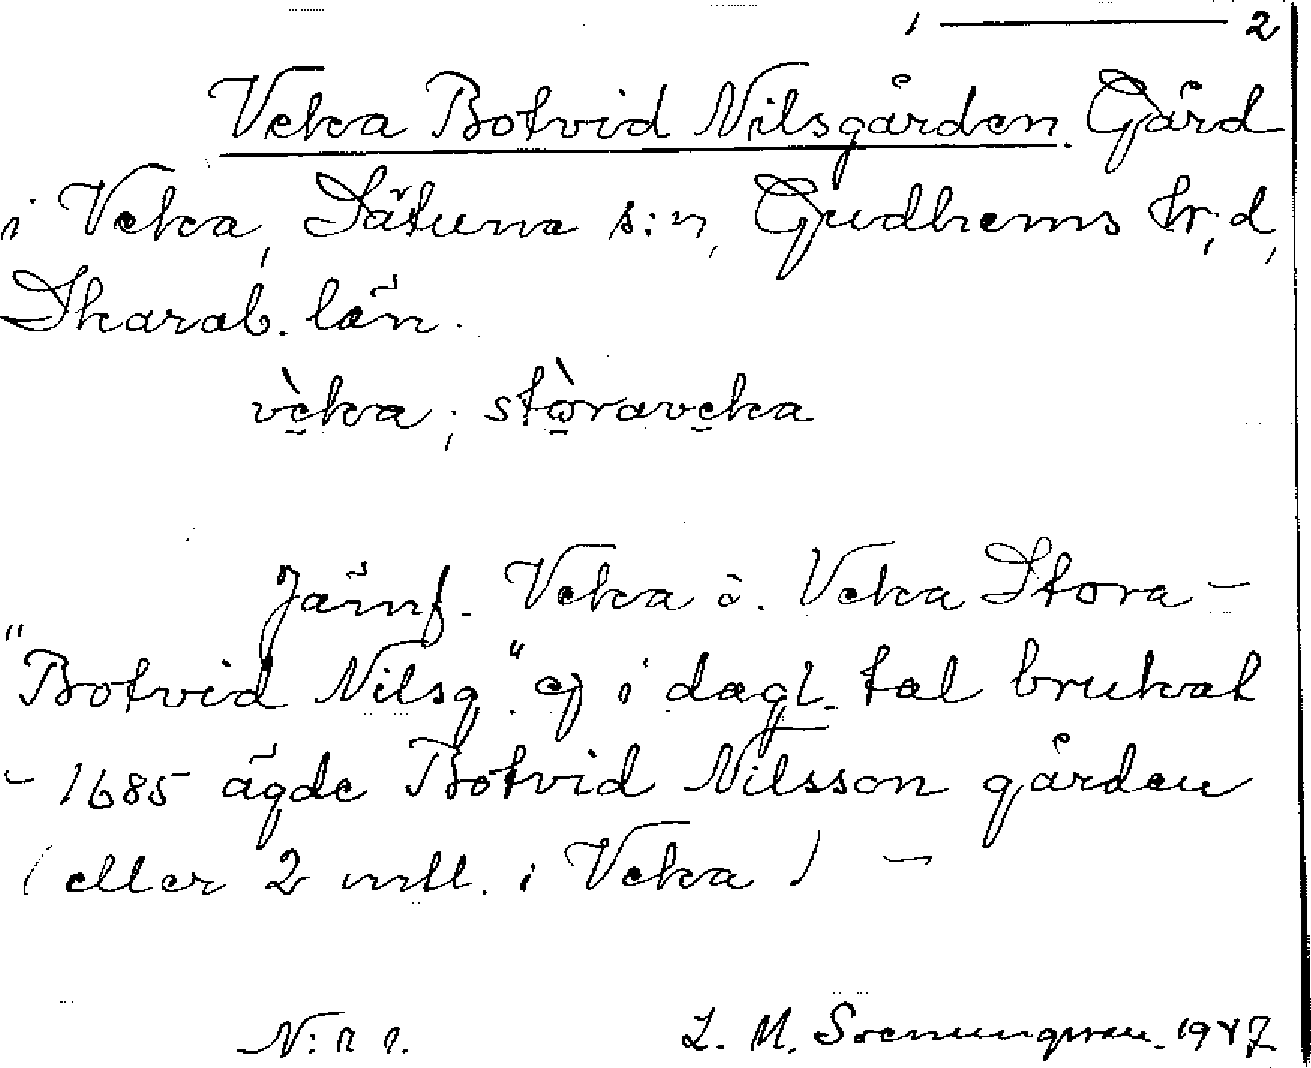 1 ——— 2
Veka Botvid Nilsgården. Gård
i Veka, Sätuna s:n, Gudhems hr,d,
Skarab. län.
vèka; stòraveka
Jämf. Veka o. Veka Stora –
"Botvid Nilsg." ej i dagl. tal brukat
– 1685 ägde Botvid Nilsson gården
(eller 2 mtl. i Veka) –
N:r 1.
L. M. Svenungsson. 1947